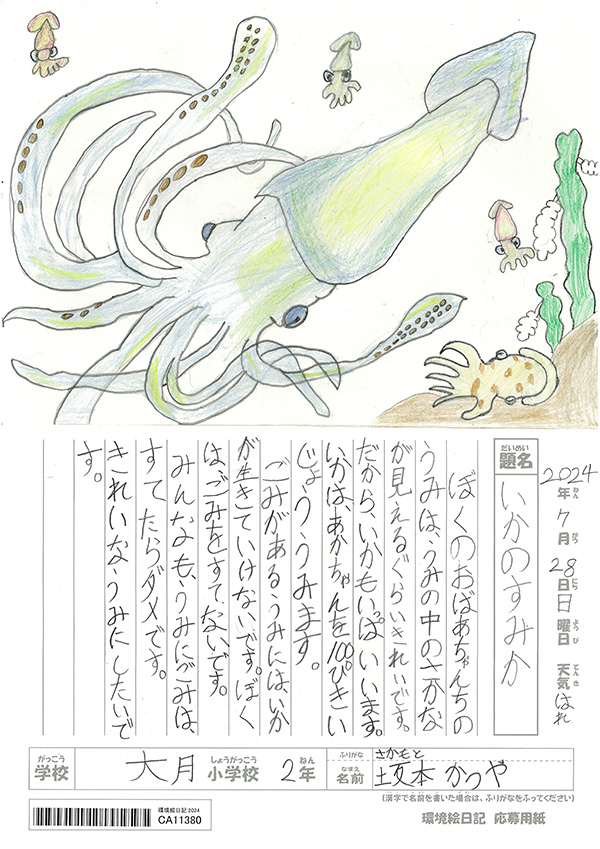 2024年ねん 7月がつ 28日にち 日曜日ようび 天気てんき はれ
題名だいめい いかのすみか
ぼくのおばあちゃんちの
うみは、うみの中のさかな
が見えるぐらいきれいです。
だから、いかもいっぱいいます。
いかは、あかちゃんを100ぴきい
じょううみます。
ごみがあるうみには、いか
が生きていけないです。ぼく
は、ごみをすてないです。
みんなも、うみにごみは、
すてたらダメです。
きれいな、うみにしたいで
す。
学校がっこう 大月 小学校しょうがっこう 2年ねん
ふりがな さかもと
名前なまえ 坂本 かつや
(漢字で名前を書いた場合は、ふりがなをふってください)
環境絵日記 2024
CA11380
環境絵日記 応募用紙